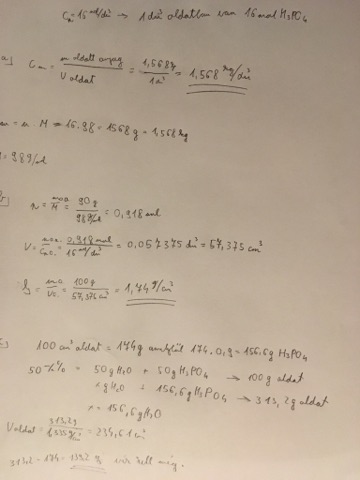 Cn=16 mol/dm³ → 1 dm³ oldatban van 16 mol H₃PO₄
a) Cm = m oldott anyag / V oldat = 1,568 kg / 1 dm³ = 1,568 kg/dm³
m = n · M = 16 · 98 = 1568 g = 1,568 kg
M = 98 g/mol
b) n = m o.a. / M = 90 g / 98 g/mol = 0,918 mol
V = n o.a. / Cn o. = 0,918 mol / 16 mol/dm³ = 0,057375 dm³ = 57,375 cm³
= m o. / V o. = 100 g / 57,375 cm³ = 1,74 g/cm³
c) 100 cm³ oldat = 174 g 174 · 0,9 = 156,6 g H₃PO₄
50 = 50 g H₂O + 50 g H₃PO₄ → 100 g oldat
x g H₂O + 156,6 g H₃PO₄ → 313,2 g oldat
x = 156,6 g H₂O
V oldat = 313,2 g / 1,335 g/cm³ = 234,61 cm³
313,2 - 174 = 139,2 g víz kell még.